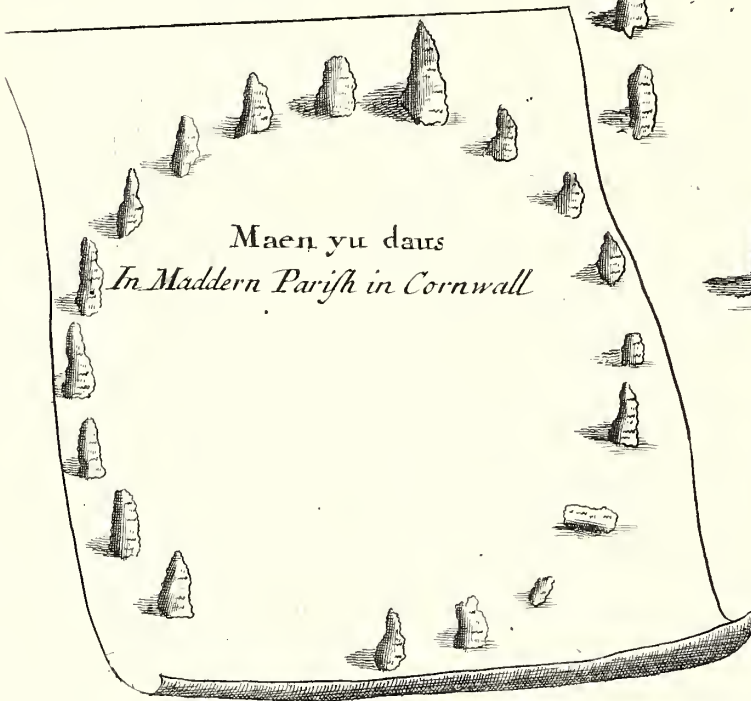 Maen yu daus
In Maddern Pariſh in Cornwall